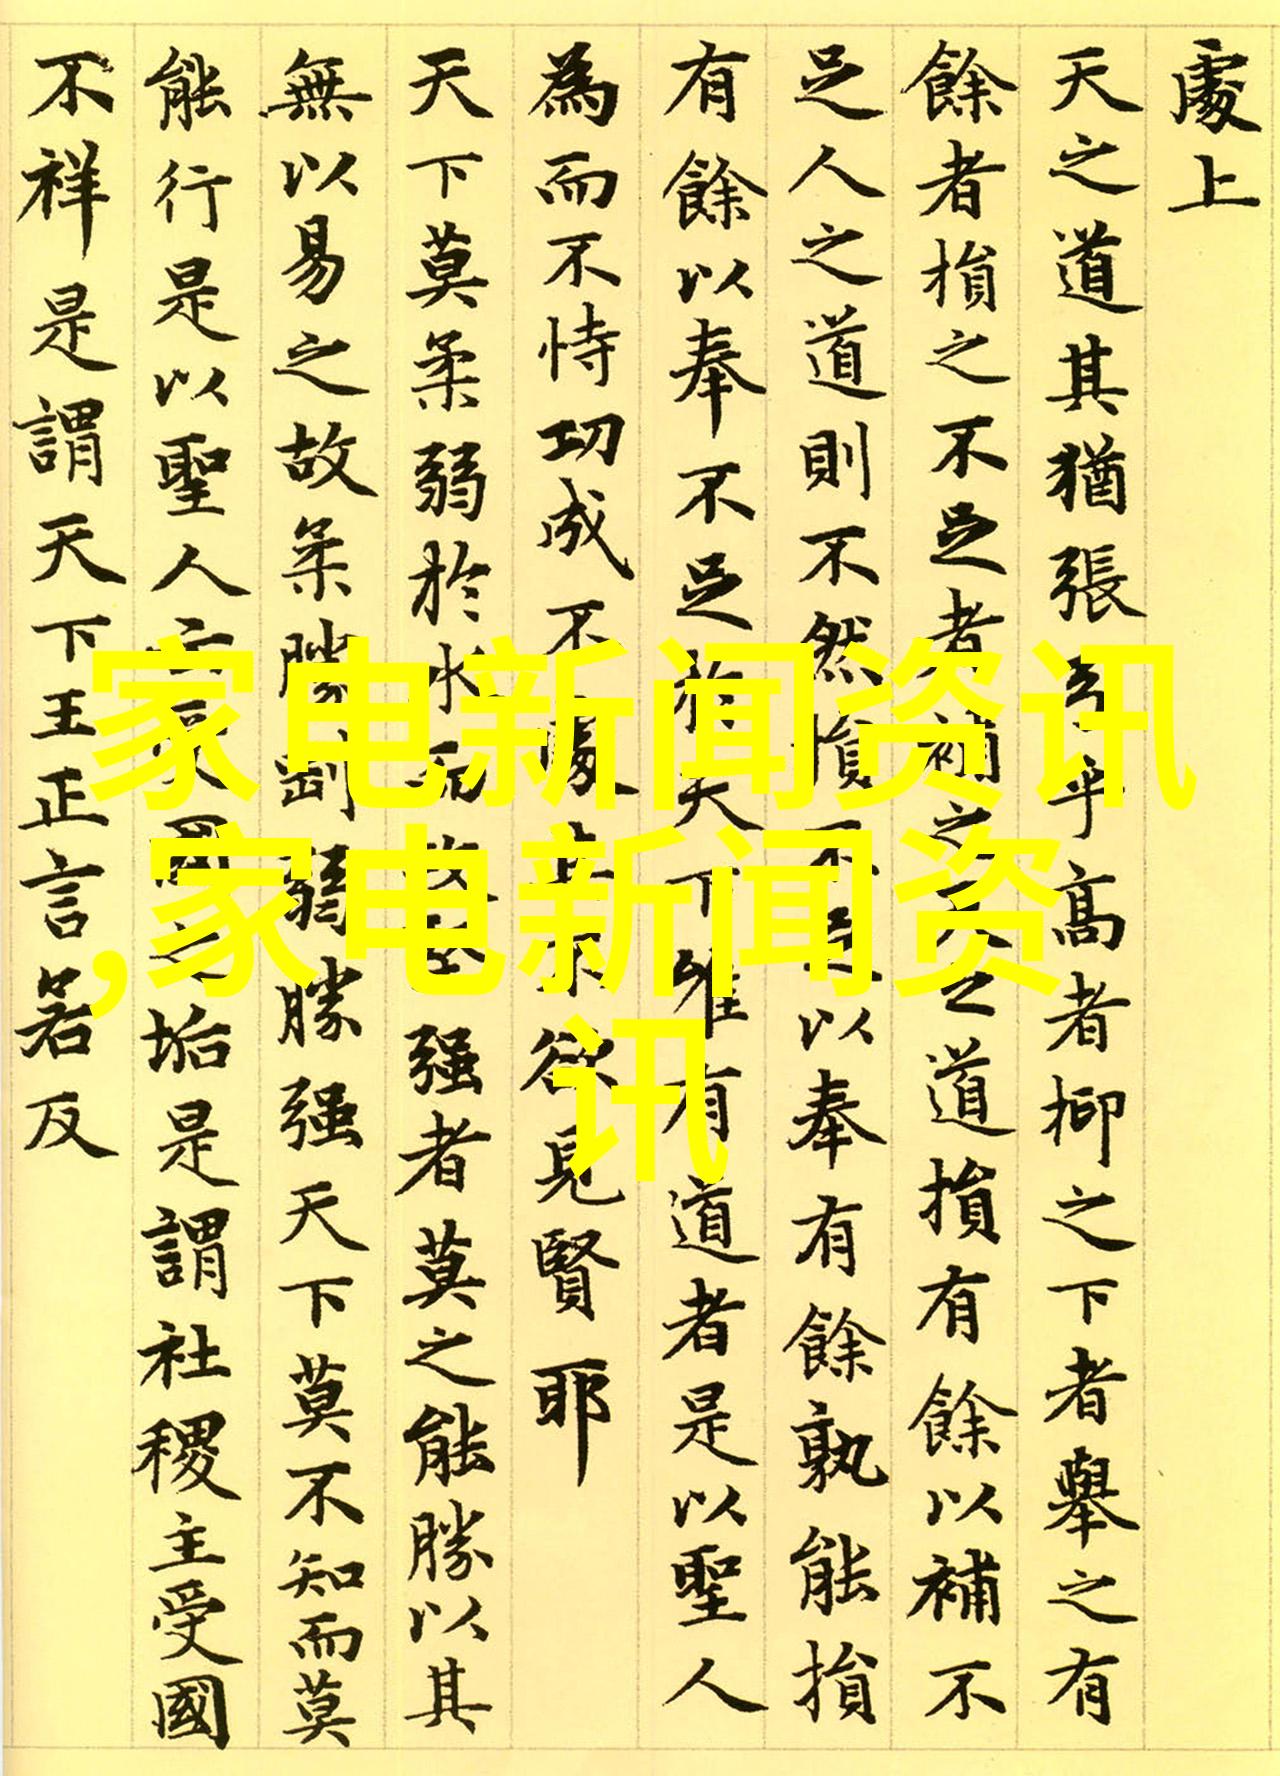 處上
天之道其猶張弓乎高者抑之下者舉之有
餘者損之不足者補之天之道損有餘以補不
足人之道則不然損不足以奉有餘孰能損
有餘以奉不足於天下唯有道者是以聖人
為而不恃功成不處不欲見賢耶
天下莫柔弱於水而攻堅强者莫之能勝以其
無以易之故柔勝剛弱勝强天下莫不知而莫
能行是以聖人云受國之垢是謂社稷主受國
不祥是謂天下王正言若反
家电新闻资讯
,家电新闻资
讯